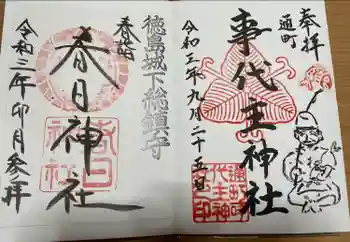 奉拝
通町
事代主神社
令和三年九月二十五日
通町
事代主神社之印
徳島城下総鎮守
春詣
春日神社
春日神社
令和三年卯月参拝